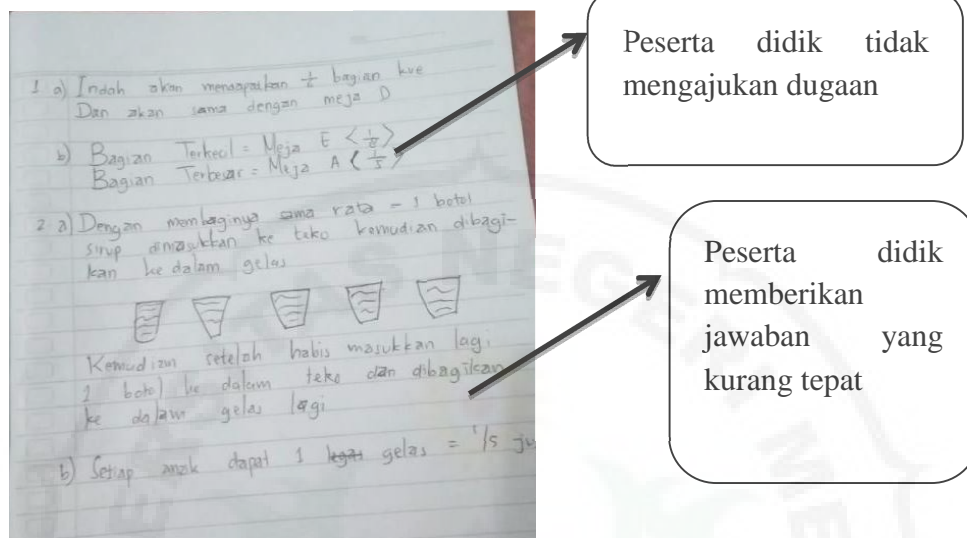 1 a) Indah akan mendapatkan bagian kue
Dan akan sama dengan meja D
b) Bagian Terkecil = Meja E < 1/8 >
Bagian Terbesar = Meja A < 1/5 >
2 a) Dengan membaginya sama rata - 1 botol
sirup dimasukkan ke teko kemudian dibagi-
kan ke dalam gelas
Kemudian setelah habis masukkan lagi
1 botol ke dalam teko dan dibagikan
ke dalam gelas lagi
b) Setiap anak dapat 1 gelas = 1/5 ju
Peserta didik tidak
mengajukan dugaan
Peserta didik
memberikan
jawaban yang
kurang tepat